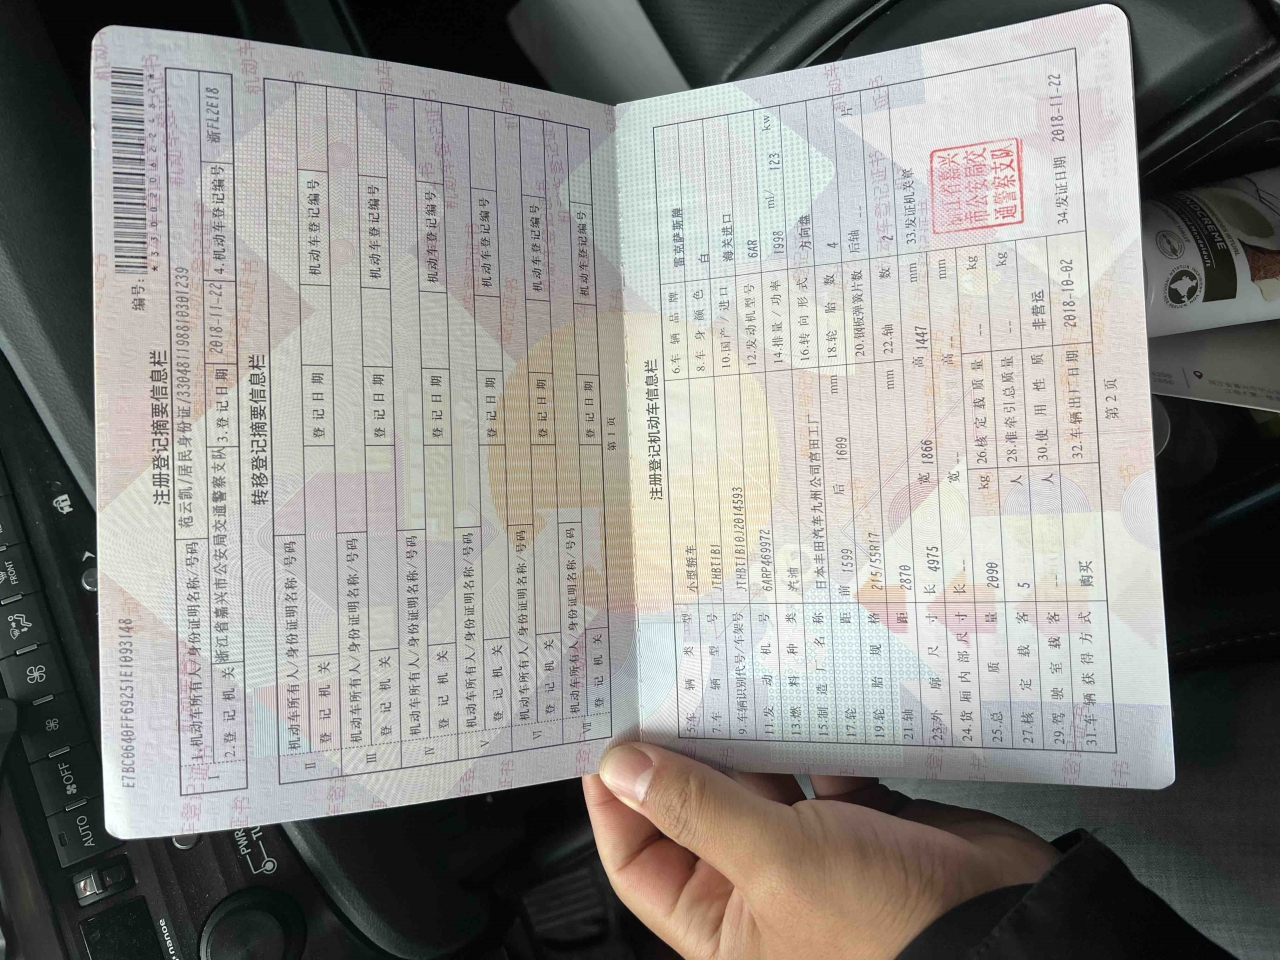 E7BC0640FF69251E1E1093148
编号:
*330020622452*
注册登记摘要信息栏
I 1.机动车所有人/身份证明名称/号码 范云凯/居民身份证/330481198810301239
2.登记机关 浙江省嘉兴市公安局交通警察支队 3.登记日期 2018-11-22 4.机动车登记编号 浙FL2E18
转移登记摘要信息栏
II 机动车所有人/身份证明名称/号码
登记机关 登记日期 机动车登记编号
III 机动车所有人/身份证明名称/号码
登记机关 登记日期 机动车登记编号
IV 机动车所有人/身份证明名称/号码
登记机关 登记日期 机动车登记编号
V 机动车所有人/身份证明名称/号码
登记机关 登记日期 机动车登记编号
VI 机动车所有人/身份证明名称/号码
登记机关 登记日期 机动车登记编号
VII 机动车所有人/身份证明名称/号码
登记机关 登记日期 机动车登记编号
第1页
注册登记机动车信息栏
5.车辆类型 小型轿车 6.车辆品牌 雷克萨斯牌
7.车辆型号 JTHBT1B1 8.车身颜色 白
9.车辆识别代号/车架号 JTHBT1B10J2014593 10.国产/进口 海关进口
11.发动机号 6ARP469972 12.发动机型号 6AR
13.燃料种类 汽油 14.排量/功率 1998 ml/ 123 kw
15.制造厂名称 日本丰田汽车九州公司宫田工厂 16.转向形式 方向盘
17.轮距 前 1599 后 1609 mm 18.轮胎数 4
19.轮胎规格 215/55R17 20.钢板弹簧片数 后轴 -- 片
21.轴距 2870 mm 22.轴数 2
23.外廓尺寸 长 4975 宽 1866 高 1447 mm 33.发证机关章
24.货厢内部尺寸 长 -- 宽 -- 高 -- mm
25.总质量 2090 kg 26.核定载质量 -- kg
27.核定载客 5 人 28.准牵引总质量 -- kg
29.驾驶室载客 -- 人 30.使用性质 非营运
31.车辆获得方式 购买 32.车辆出厂日期 2018-10-02 34.发证日期 2018-11-22
浙江省嘉兴
市公安局交
通警察支队
第2页
FRONT
AUTO
OFF
PWR